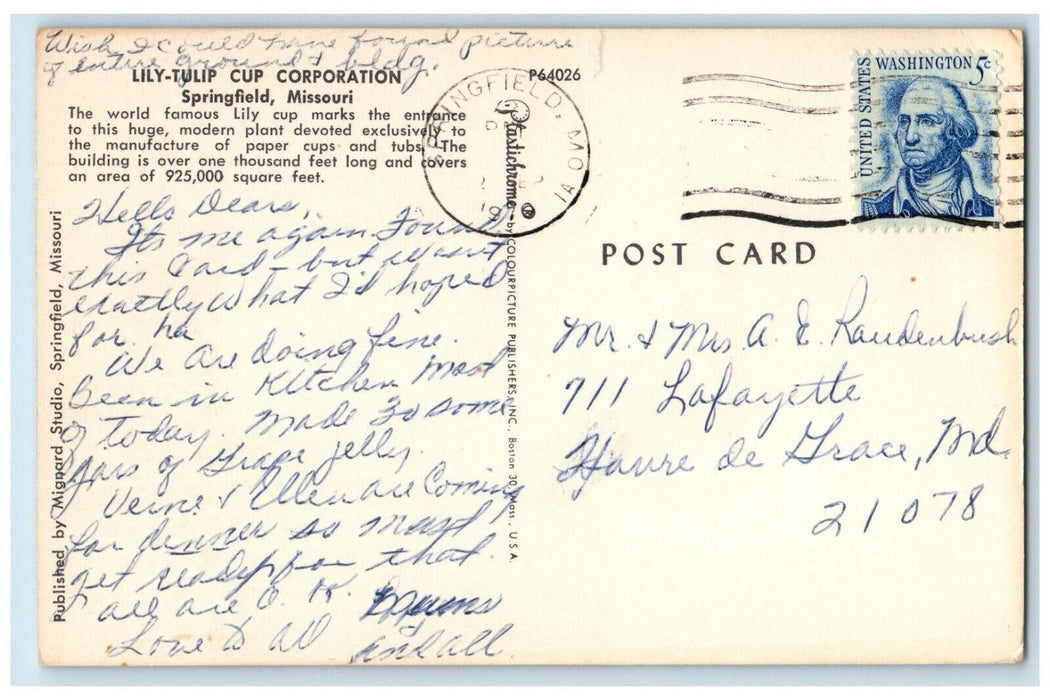 Wish I could have found picture
of entire ground & bldg.
LILY-TULIP CUP CORPORATION
Springfield, Missouri
The world famous Lily cup marks the entrance
to this huge, modern plant devoted exclusively to
the manufacture of paper cups and tubs. The
building is over one thousand feet long and covers
an area of 925,000 square feet.
Hello Dears,
Its me again. Found
this Card - but wasn't
exactly what I'd hoped
for. ha
We are doing fine.
Been in Kitchen most
of today. made 30 some
jars of Grape jelly.
Verne & Ellen are Coming
for dinner so must
get ready for that.
all are O. K.
Love to all
and all.
Published by Mignard Studio, Springfield, Missouri
P64026
Plastichrome ® by COLOURPICTURE PUBLISHERS, INC., Boston 30, Mass., U.S.A.
SPRINGFIELD, MO
UNITED STATES
WASHINGTON 5c
POST CARD
Mr. & Mrs A. E. Raudenbush
711 Lafayette
Havre de Grace, Md.
21078